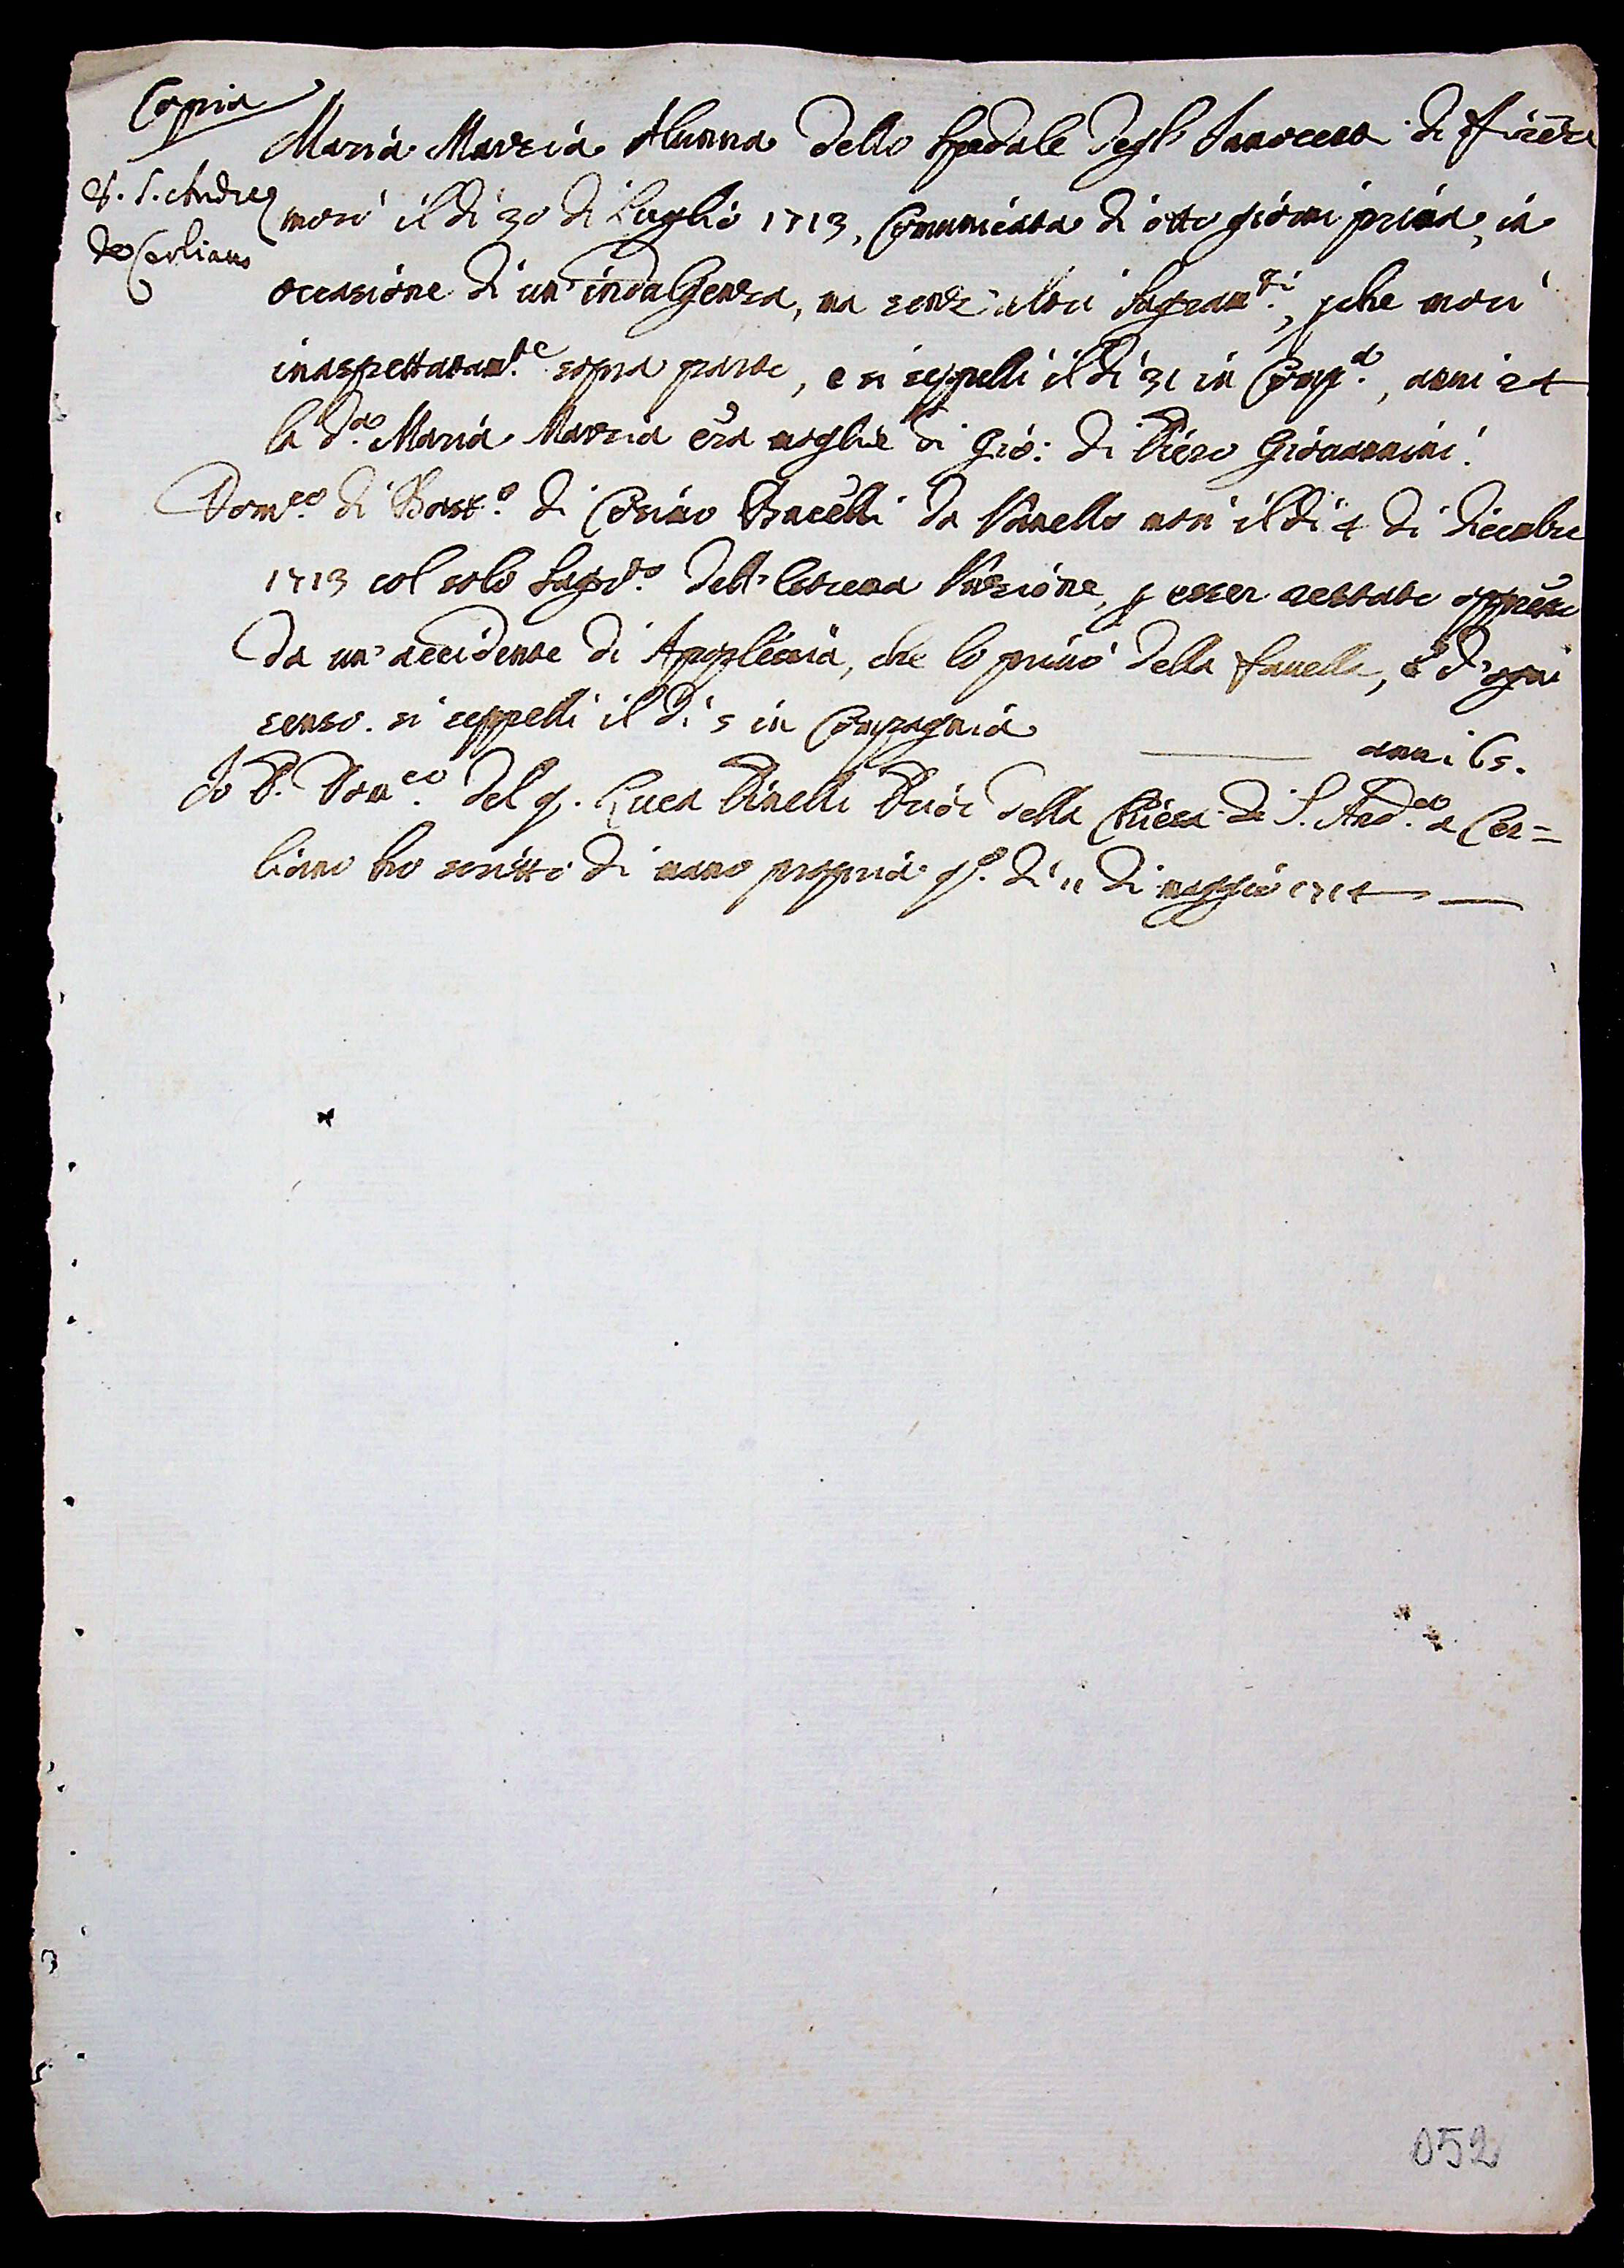 Copia
&. S. Andrea
da Cerliano
Maria Marzia Alunna dello Spedale degl' Innocenti di Firẽze
morì il dì 30 di Luglio 1713, Comunicata di otto giorni prima, in
occasione di un' indulgenza, ma senz' altri Sagram.ti, pche morì
inaspettatam.te sopra parto, e si seppellì il dì 31 in Comp.a, anni 24
la d.a Maria Marzia era moglie di Gio: di Piero Giovannini.
Dom.co di Bast.o di Cosimo Bacelli da Vanello morì il dì 4 di Dicembre
1713 col solo Sagr.to dell' Estrema Unzione, p esser restato oppresso
da un' accidente di Apoplessia, che lo privò della favella, e d' ogni
senso. si seppellì il dì 5 in Compagnia
anni 65.
Io P. Dom.co del q. Luca Pinelli Prior della Chiesa di S. And.ea a Cer=
liano ho scritto di mano propria q.o dì 11 di maggio 1714
052